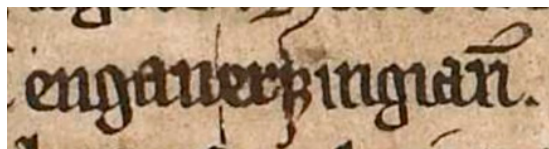 engauerþingian̄.